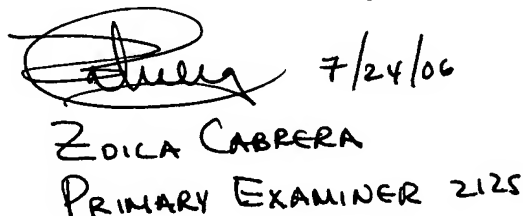 7/24/06
ZOILA CABRERA
PRIMARY EXAMINER 2125